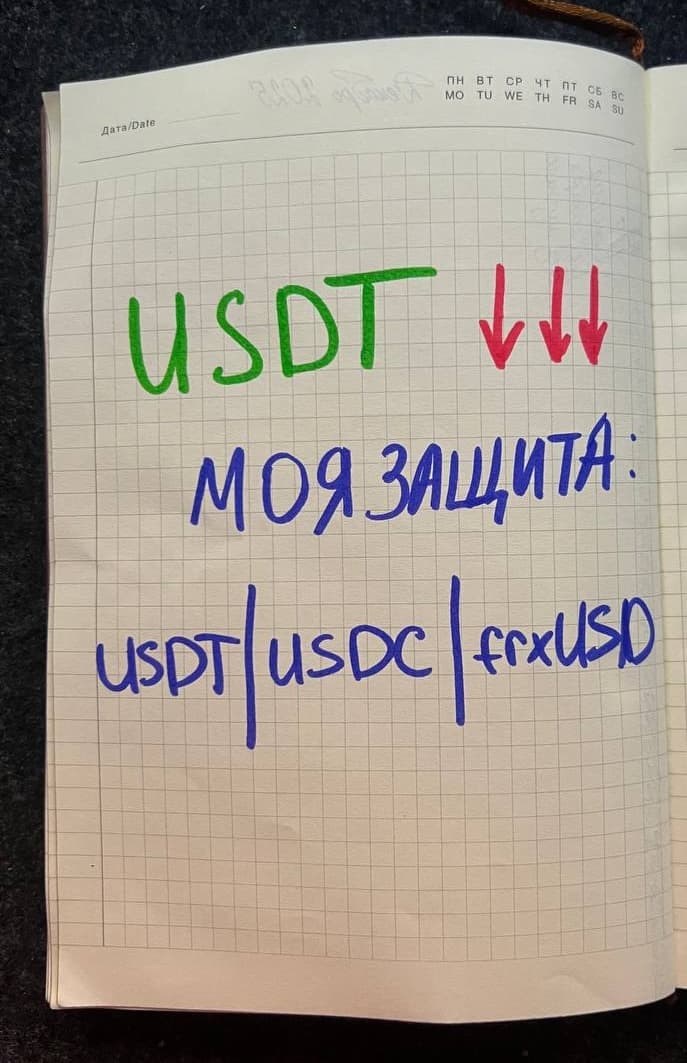 ПН ВТ СР ЧТ ПТ СБ ВС
MO TU WE TH FR SA SU
Дата/Date
USDT ↓↓↓
МОЯ ЗАЩИТА:
USDT | USDC | frxUSD